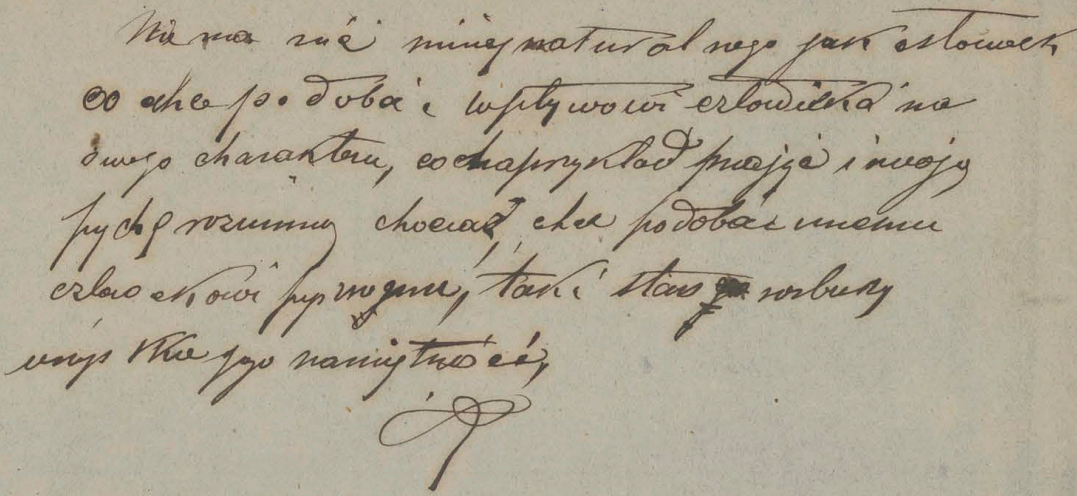 Nie ma nić mniej naturalnego jak człowiek
co chce podobać wpływowi człowieka na
swego charakteru, co naprzykład i swoją
pychę rozumną chociaż, chce podobać innemu
człowiekowi taki stan wzburzy
wszystkie jego namiętności,